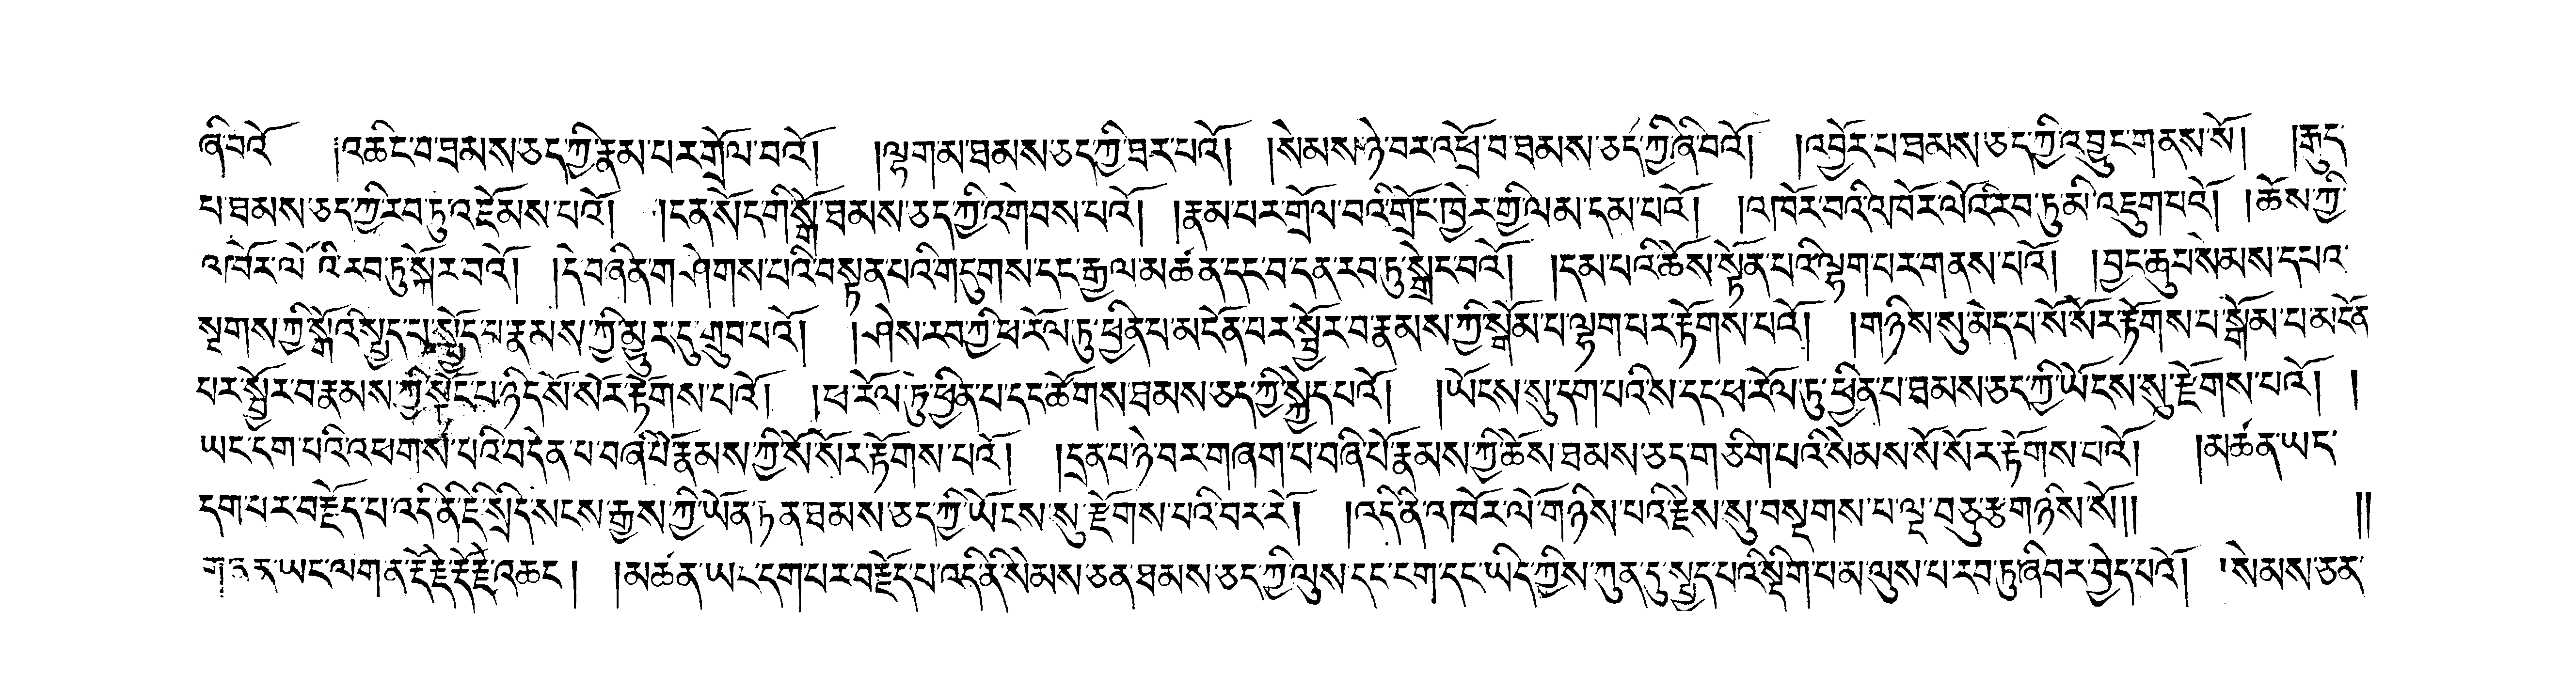 ཞི་བའོ། །འཆིང་བ་ཐམས་ཅད་ཀྱི་རྣམ་པར་གྲོལ་བའོ། །ལྷག་མ་ཐམས་ཅད་ཀྱི་ཐར་པའོ། །སེམས་ཉེ་བར་འཕྲོ་བ་ཐམས་ཅད་ཀྱི་ཞི་བའོ། །འབྱོར་པ་ཐམས་ཅད་ཀྱི་འབྱུང་གནས་སོ། །རྒུད་
པ་ཐམས་ཅད་ཀྱི་རབ་ཏུ་འཇོམས་པའོ། །ངན་སོང་གི་སྒོ་ཐམས་ཅད་ཀྱི་འགེབས་པའོ། །རྣམ་པར་གྲོལ་བའི་གྲོང་ཁྱེར་གྱི་ལམ་དམ་པའོ། །འཁོར་བའི་འཁོར་ལོའི་རབ་ཏུ་མི་འཇུག་པའོ། །ཆོས་ཀྱི་
འཁོར་ལོའི་རབ་ཏུ་སྐོར་བའོ། །དེ་བཞིན་གཤེགས་པའི་བསྟན་པའི་གདུགས་དང་རྒྱལ་མཚན་དང་བ་དན་རབ་ཏུ་སྒྲེང་བའོ། །དམ་པའི་ཆོས་སྟོན་པའི་ལྷག་པར་གནས་པའོ། །བྱང་ཆུབ་སེམས་དཔའ་
སྔགས་ཀྱི་སྒོའི་སྤྱད་པ་སྤྱོད་པ་རྣམས་ཀྱི་མྱུར་དུ་གྲུབ་པའོ། །ཤེས་རབ་ཀྱི་ཕ་རོལ་ཏུ་ཕྱིན་པ་མངོན་པར་སྦྱོར་བ་རྣམས་ཀྱི་སྒོམ་པ་ལྷག་པར་རྟོགས་པའོ། །གཉིས་སུ་མེད་པ་སོ་སོར་རྟོགས་པ་སྒོམ་པ་མངོན་
པར་སྦྱོར་བ་རྣམས་ཀྱི་སྟོང་པ་ཉིད་སོ་སོར་རྟོགས་པའོ། །ཕ་རོལ་ཏུ་ཕྱིན་པ་དང་ཚོགས་ཐམས་ཅད་ཀྱི་སྐྱེད་པའོ། །ཡོངས་སུ་དག་པའི་ས་དང་ཕ་རོལ་ཏུ་ཕྱིན་པ་ཐམས་ཅད་ཀྱི་ཡོངས་སུ་རྫོགས་པའོ། །
ཡང་དག་པའི་འཕགས་པའི་བདེན་པ་བཞི་པོ་རྣམས་ཀྱི་སོ་སོར་རྟོགས་པའོ། །དྲན་པ་ཉེ་བར་གཞག་པ་བཞི་པོ་རྣམས་ཀྱི་ཆོས་ཐམས་ཅད་གཅིག་པའི་སེམས་སོ་སོར་རྟོགས་པའོ། །མཚན་ཡང་
དག་པར་བརྗོད་པ་འདི་ནི་ཇི་སྲིད་སངས་རྒྱས་ཀྱི་ཡོན་ཏན་ཐམས་ཅད་ཀྱི་ཡོངས་སུ་རྫོགས་པའི་བར་རོ། །འདི་ནི་འཁོར་ལོ་གཉིས་པའི་རྗེས་སུ་བསྔགས་པ་ལྔ་བཅུ་རྩ་གཉིས་སོ།། །།
གཞན་ཡང་ལག་ན་རྡོ་རྗེ་རྡོ་རྗེ་འཆང་། །མཚན་ཡང་དག་པར་བརྗོད་པ་འདི་ནི་སེམས་ཅན་ཐམས་ཅད་ཀྱི་ལུས་དང་ངག་དང་ཡིད་ཀྱིས་ཀུན་དུ་སྤྱད་པའི་སྡིག་པ་མ་ལུས་པ་རབ་ཏུ་ཞི་བར་བྱེད་པའོ། །སེམས་ཅན་